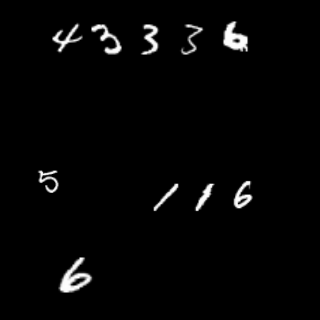 43336
5 116
6